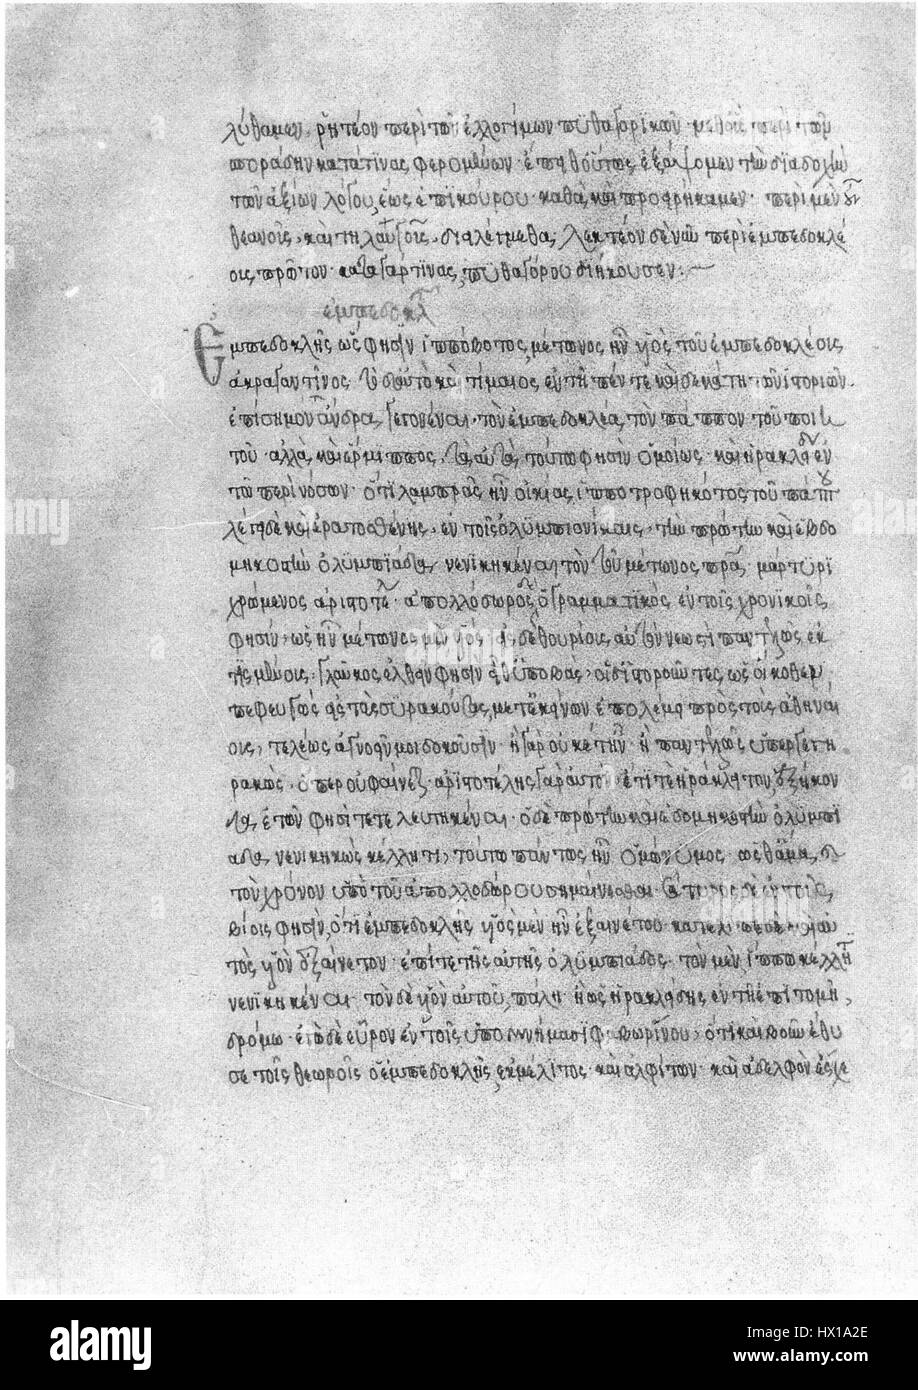 λύθαμεν, ῥητέον περὶ τῶν ἐλλογίμων πυθαγορικῶν· μεθ οὓς περὶ τῶν
σποράδην κατά τινας φερομένων· ἔπειθ οὕτως ἐξάψομεν τὴν διαδοχὴν
τῶν ἀξίων λόγου, ἕως ἐπικούρου· καθὰ καὶ προειρήκαμεν· περὶ μὲν οὖν
θεανοῦς, καὶ τηλαυγοῦς, διειλέγμεθα, λεκτέον δὲ νῦν περὶ ἐμπεδοκλέ
ους πρῶτον· κατὰ γάρ τινας, πυθαγόρου διήκουσεν:
ἐμπεδοκλ
Ἐμπεδοκλῆς ὥς φησιν ἱππόβοτος, μέτωνος ἦν υἱὸς τοῦ ἐμπεδοκλέους
ἀκραγαντῖνος· τὸ δ αὐτὸ καὶ τίμαιος ἐν τῇ πεντεκαιδεκάτη τῶν ἱστοριῶν·
ἐπίσημον ἄνδρα γεγονέναι τὸν ἐμπεδοκλέα τὸν πάππον τοῦ ποιη
τοῦ· ἀλλὰ καὶ ἕρμιππος, τὰ αὐτὰ τούτω φησὶν· ὁμοίως καὶ ἡρακλείδης ἐν
τῶ περὶ νόσων· ὅτι λαμπρᾶς ἦν οἰκίας ἱπποτροφηκότος τοῦ πάππου
λέγει δὲ καὶ ἐρατοσθένης, ἐν τοῖς ὀλυμπιονίκαις, τὴν πρώτην καὶ ἑβδο
μηκοστὴν ὀλυμπιάδα, νενικηκέναι τὸν τοῦ μέτωνος πρα, μάρτυρι
χρώμενος ἀριστοτέλ· ἀπολλόδωρος δ ὁ γραμματικὸς ἐν τοῖς χρονικοῖς
φησὶν· ὡς ἦν μέτωνος μὲν υἱὸς εἰς δὲ θουρίους αὐτὸν νεωστὶ παντελῶς ἐκ
τισμένους, γλαῦκος ἐλθεῖν φησὶν εἶθ ὑποβάς, οἱ δ ἱστοροῦντες ὡς οἴκοθεν
πεφευγὼς εἰς τὰς συρακούσας, μετ ἐκείνων ἐπολέμει πρὸς τοὺς ἀθηναί
ους, τελέως ἀγνοεῖν μοι δοκοῦσιν· ἢ γὰρ οὐκέτ ἦν· ἢ παντελῶς ὑπεργεγη
ρακὼς· ὅπερ οὐ φαίνεται· ἀριστοτέλης γὰρ αὐτὸν ἔτι τε ἡράκλειτον, ἑξήκον
τα, ἐτῶν φησὶ τετελευτηκέναι· ὁ δὲ πρώτην καὶ ἑβδομηκοστὴν ὀλυμπι
άδα, νενικηκὼς κέλητι, τούτου πάππος ἦν ὁμώνυμος· ὥσθ ἅμα, καὶ
τὸν χρόνον ὑπὸ τοῦ ἀπολλοδώρου σημαίνεσθαι· σάτυρος δὲ ἐν τοῖς
βίοις φησὶν, ὅτι ἐμπεδοκλῆς υἱὸς μὲν ἦν ἐξαινέτου· κατέλιπε δὲ καὶ αὐ
τὸς υἱὸν ἐξαίνετον· ἐπί τε τῆς αὐτῆς ὀλυμπιάδος· τὸν μὲν ἵππω κέλητι
νενικηκέναι· τὸν δὲ υἱὸν αὐτοῦ, πάλη· ἢ ὡς ἡρακλείδης ἐν τῇ ἐπιτομῇ,
δρόμω· ἐγὼ δὲ εὗρον ἐν τοῖς ὑπομνήμασι φαβωρίνου, ὅτι καὶ βοῦν ἔθυ
σε τοῖς θεωροῖς ὁ ἐμπεδοκλῆς, ἐκ μέλιτος καὶ ἀλφίτων· καὶ ἀδελφὸν ἔσχε
alamy
Image ID: HX1A2E
www.alamy.com